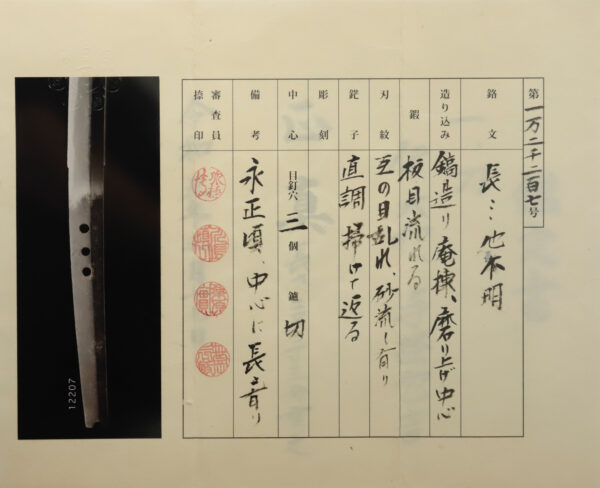 第一万二千二百七号
銘文 長ミ 也不明
造り込み 鎬造り庵棟、磨り上げ中心
鍜 板目流れる
刃紋 互の目乱れ、砂流し有り
鋩子 直調掃けて返る
彫刻
中心 目釘穴 三 個 鑢 切
備考 永正頃、中心に長ミ有り
審査員捺印
12207